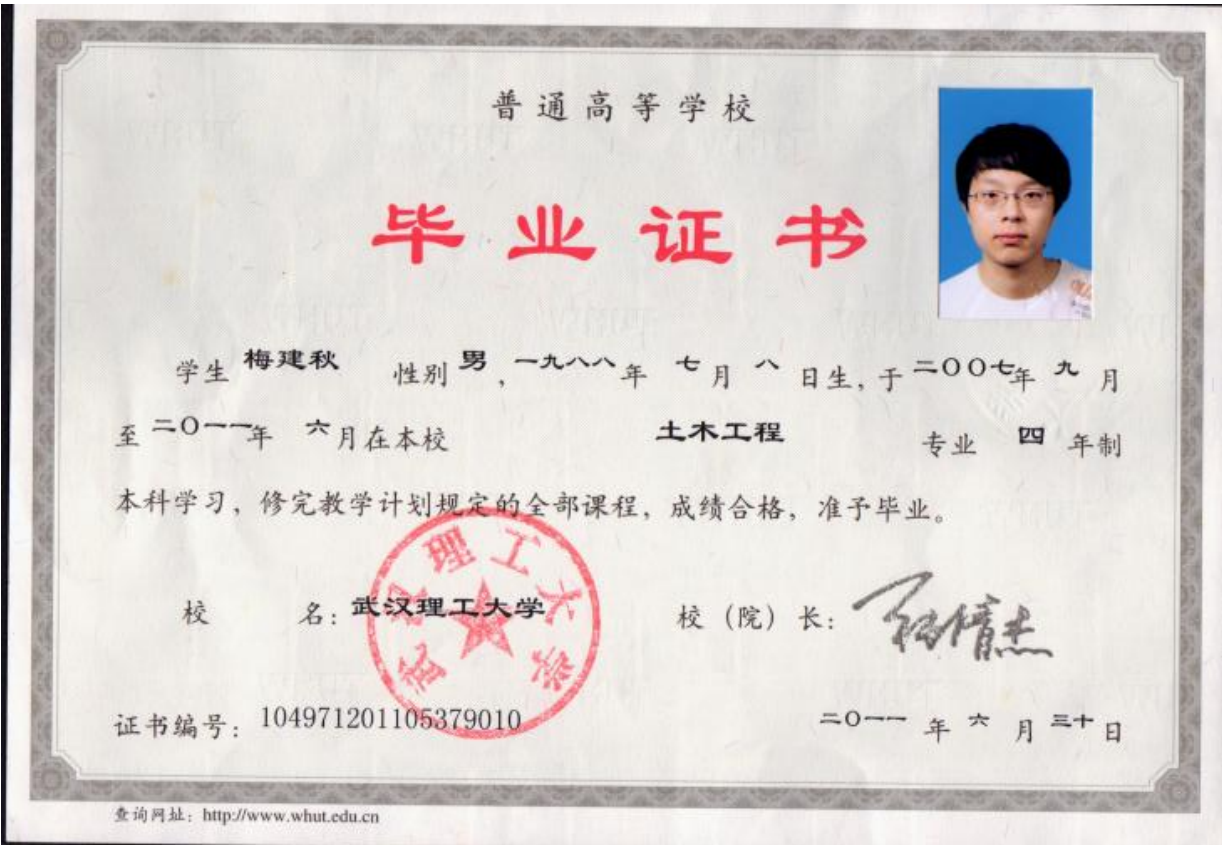 普通高等学校
毕业证书
学生 梅建秋 性别 男,一九八八年 七月 八日生,于二〇〇七年 九月
至二〇一一年 六月在本校 土木工程 专业 四年制
本科学习,修完教学计划规定的全部课程,成绩合格,准予毕业。
武汉理工大学
校 名:武汉理工大学 校(院)长:
证书编号:104971201105379010 二〇一一年 六月 三十日
查询网址:http://www.whut.edu.cn